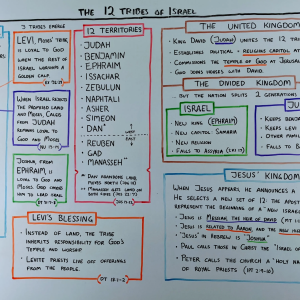 THE 12 TRIBES OF ISRAEL
3 TRIBES EMERGE
LEVI, MOSES' TRIBE,
IS LOYAL TO GOD
WHEN THE REST OF
ISRAEL WORSHIP A
GOLDEN CALF
WHEN ISRAEL REJECTS
THE PROMISED LAND
AND MOSES, CALEB
FROM JUDAH
REMAINS LOYAL TO
GOD AND MOSES
JOSHUA, FROM
EPHRAIM, IS
LOYAL TO GOD AND
MOSES. GOD CHOOSES
HIM TO LEAD ISRAEL
12 TERRITORIES
JUDAH
BENJAMIN
EPHRAIM
ISSACHAR
ZEBULUN
NAPHTALI
ASHER
SIMEON
DAN*
WEST
EAST
REUBEN
GAD
MANASSEH
DAN ABANDONS LAND,
MOVES NORTH
MANASSEH GETS LAND ON
BOTH SIDES
LEVI'S BLESSING
- INSTEAD OF LAND, THE TRIBE
INHERITS RESPONSIBILITY FOR GOD'S
TEMPLE AND WORSHIP
- LEVITE PRIESTS LIVE OFF OFFERINGS
FROM THE PEOPLE.
(DT 18:1-2)
THE UNITED KINGDOM
- KING DAVID (JUDAH) UNITES THE 12 TRIBES
- ESTABLISHES POLITICAL + RELIGIOUS CAPITOL
- COMMISSIONS THE TEMPLE OF GOD AT JERUSALEM
- GOD JOINS
THE DIVIDED KINGDOM
BUT THE NATION SPLITS 2 GENERATIONS
ISRAEL
- NEW KING (EPHRAIM)
- NEW CAPITOL SAMARIA
- NEW RELIGION
- FALLS TO ASSYRIA
- KEEPS
- KEEPS LEVI
- OTHER
- FALLS TO
JESUS' KINGDOM
- WHEN JESUS APPEARS HE ANNOUNCES A
HE SELECTS A NEW SET OF 12 (THE APOST
REPRESENT THE BEGINNING OF A "NEW ISRAEL
- JESUS IS MESSIAH, THE HEIR OF DAVID
- JESUS IS RELATED TO AARON, AND THE NEW
- "JESUS" IN HEBREW IS "JOSHUA"
- PAUL CALLS THOSE IN CHRIST THE "ISRAEL OF
- PETER CALLS THE CHURCH A "HOLY
OF ROYAL PRIESTS (1PT 2:9-10)